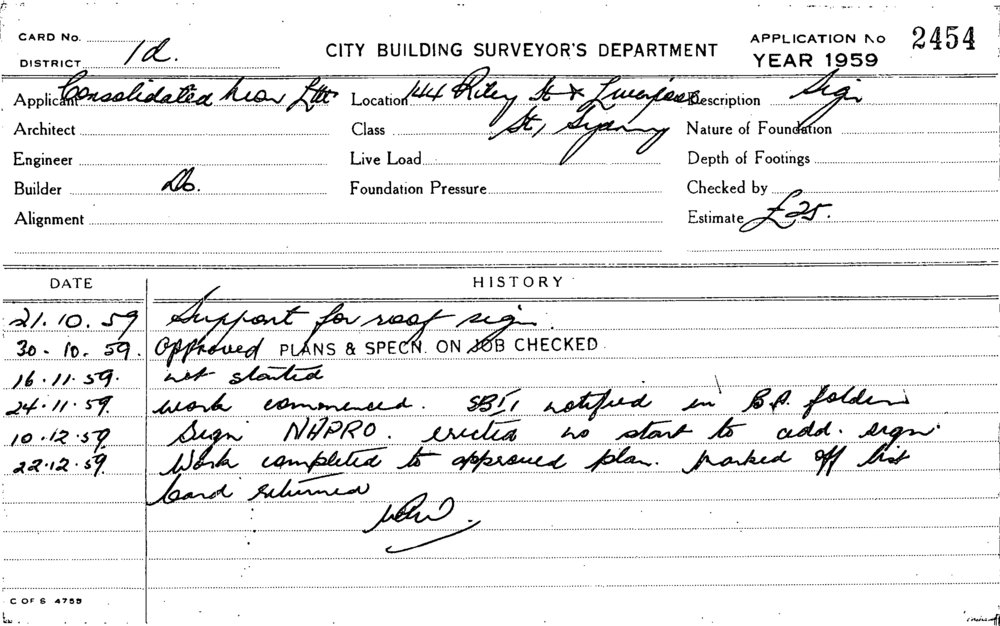 CARD No.
CITY BUILDING SURVEYOR'S DEPARTMENT
APPLICATION No 2454
DISTRICT 1d.
YEAR 1959
Applicant Consolidated Neon Ltd
Location 144 Riley St & Liverpool
Description Sign
Architect
Class St, Sydney
Nature of Foundation
Engineer
Live Load
Depth of Footings
Builder Do.
Foundation Pressure
Checked by
Alignment
Estimate £25.
DATE HISTORY
21.10.59 Support for roof sign.
30.10.59. Approved PLANS & SPECN. ON JOB CHECKED
16.11.59. not started
24.11.59. work commenced. notified in B.P. folder
10.12.59 Sign NAPRO. erected no start to add. sign.
22.12.59. Work completed to approved plan. marked off list
Card returned
C OF S 4759